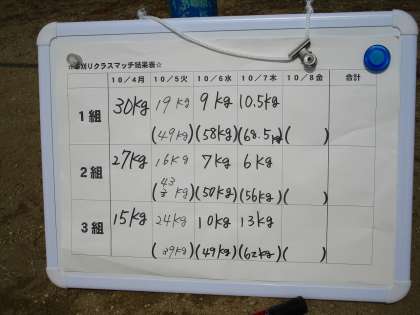 刈りクラスマッチ結果表☆
10/4月 10/5火 10/6水 10/7木 10/8金 合計
1組 30kg 19kg 9kg 10.5kg
(49kg) (58kg) (68.5kg) ( )
2組 27kg 16kg 7kg 6kg
(43kg) (50kg) (56kg) ( )
3組 15kg 24kg 10kg 13kg
(39kg) (49kg) (62kg) ( )